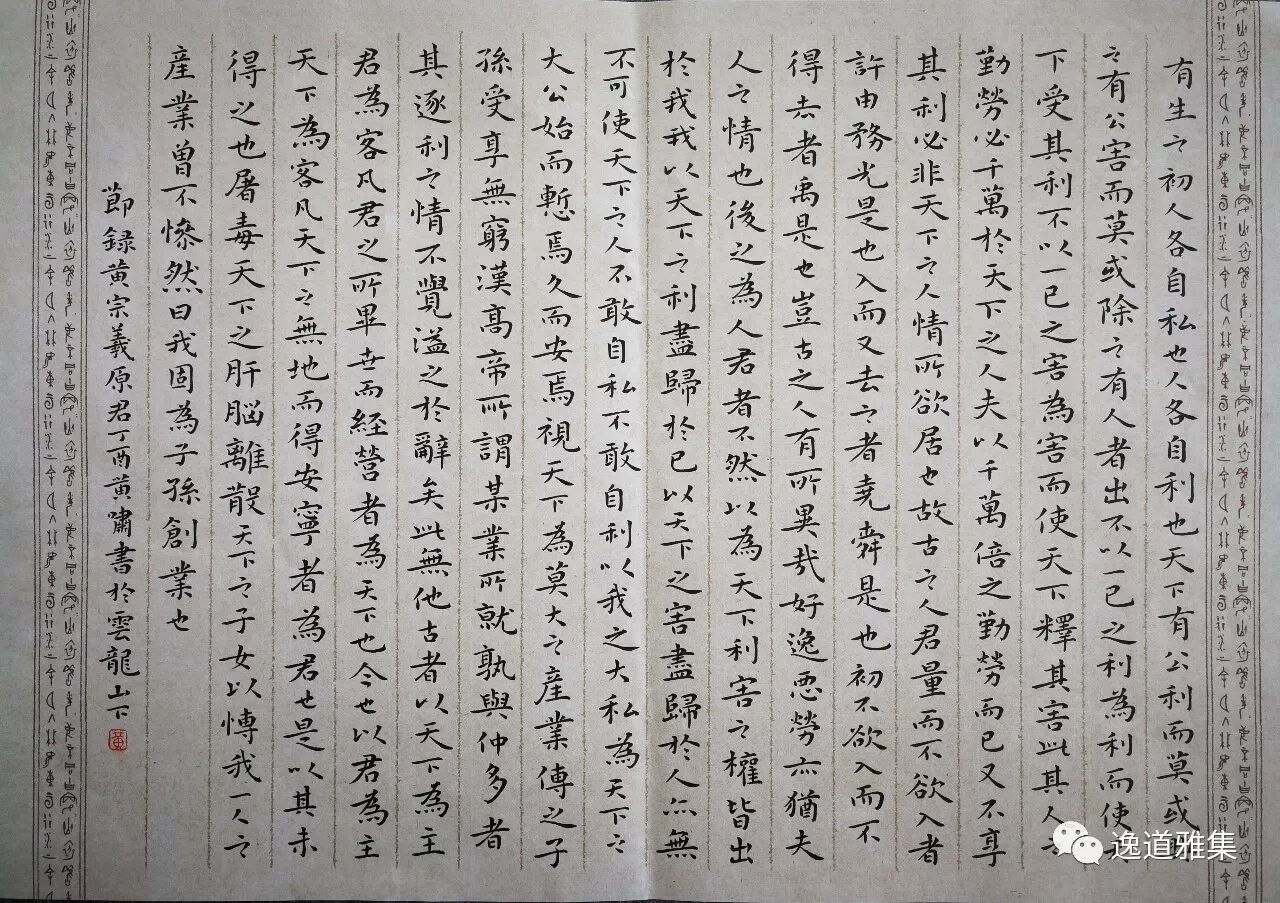 有生之初人各自私也人各自利也天下有公利而莫或
之有公害而莫或除之有人者出不以一己之利為利而使
下受其利不以一己之害為害而使天下釋其害此其人
勤勞必千萬於天下之人夫以千萬倍之勤勞而己又不享
其利必非天下之人情所欲居也故古之人君量而不欲入者
許由務光是也入而又去之者堯舜是也初不欲入而不
得去者禹是也豈古之人有所異哉好逸惡勞亦猶夫
人之情也後之為人君者不然以為天下利害之權皆出
於我我以天下之利盡歸於己以天下之害盡歸於人亦無
不可使天下之人不敢自私不敢自利以我之大私為天下之
大公始而慙焉久而安焉視天下為莫大之産業傳之子
孫受享無窮漢高帝所謂某業所就孰與仲多者
其逐利之情不覺溢之於辭矣此無他古者以天下為主
君為客凡君之所畢世而経營者為天下也今也以君為主
天下為客凡天下之無地而得安寧者為君也是以其未
得之也屠毒天下之肝脳離散天下之子女以博我一人之
産業曾不慘然曰我固為子孫創業也
節録黄宗羲原君丁酉黄嘯書於雲龍山下
黄
逸道雅集